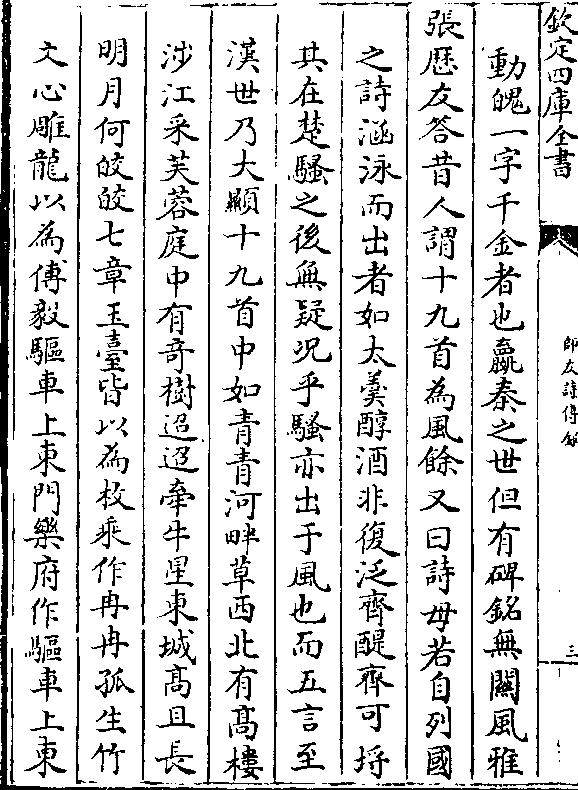 欽定四庫全書
師友詩傳録
三
動魄一字千金者也嬴秦之世但有碑銘無闗風雅
張歴友答昔人謂十九首為風餘又曰詩母若自列國
之詩涵泳而出者如太羮醇酒非復泛齊醍齊可埒
其在楚騷之後無疑况乎騷亦出于風也而五言至
漢世乃大顯十九首中如青青河畔草西北有髙樓
涉江采芙蓉庭中有竒樹迢迢牽牛星東城髙且長
明月何皎皎七章玉臺皆以為枚乘作冉冉孤生竹
文心雕龍以為傅毅驅車上東門樂府作驅車上東